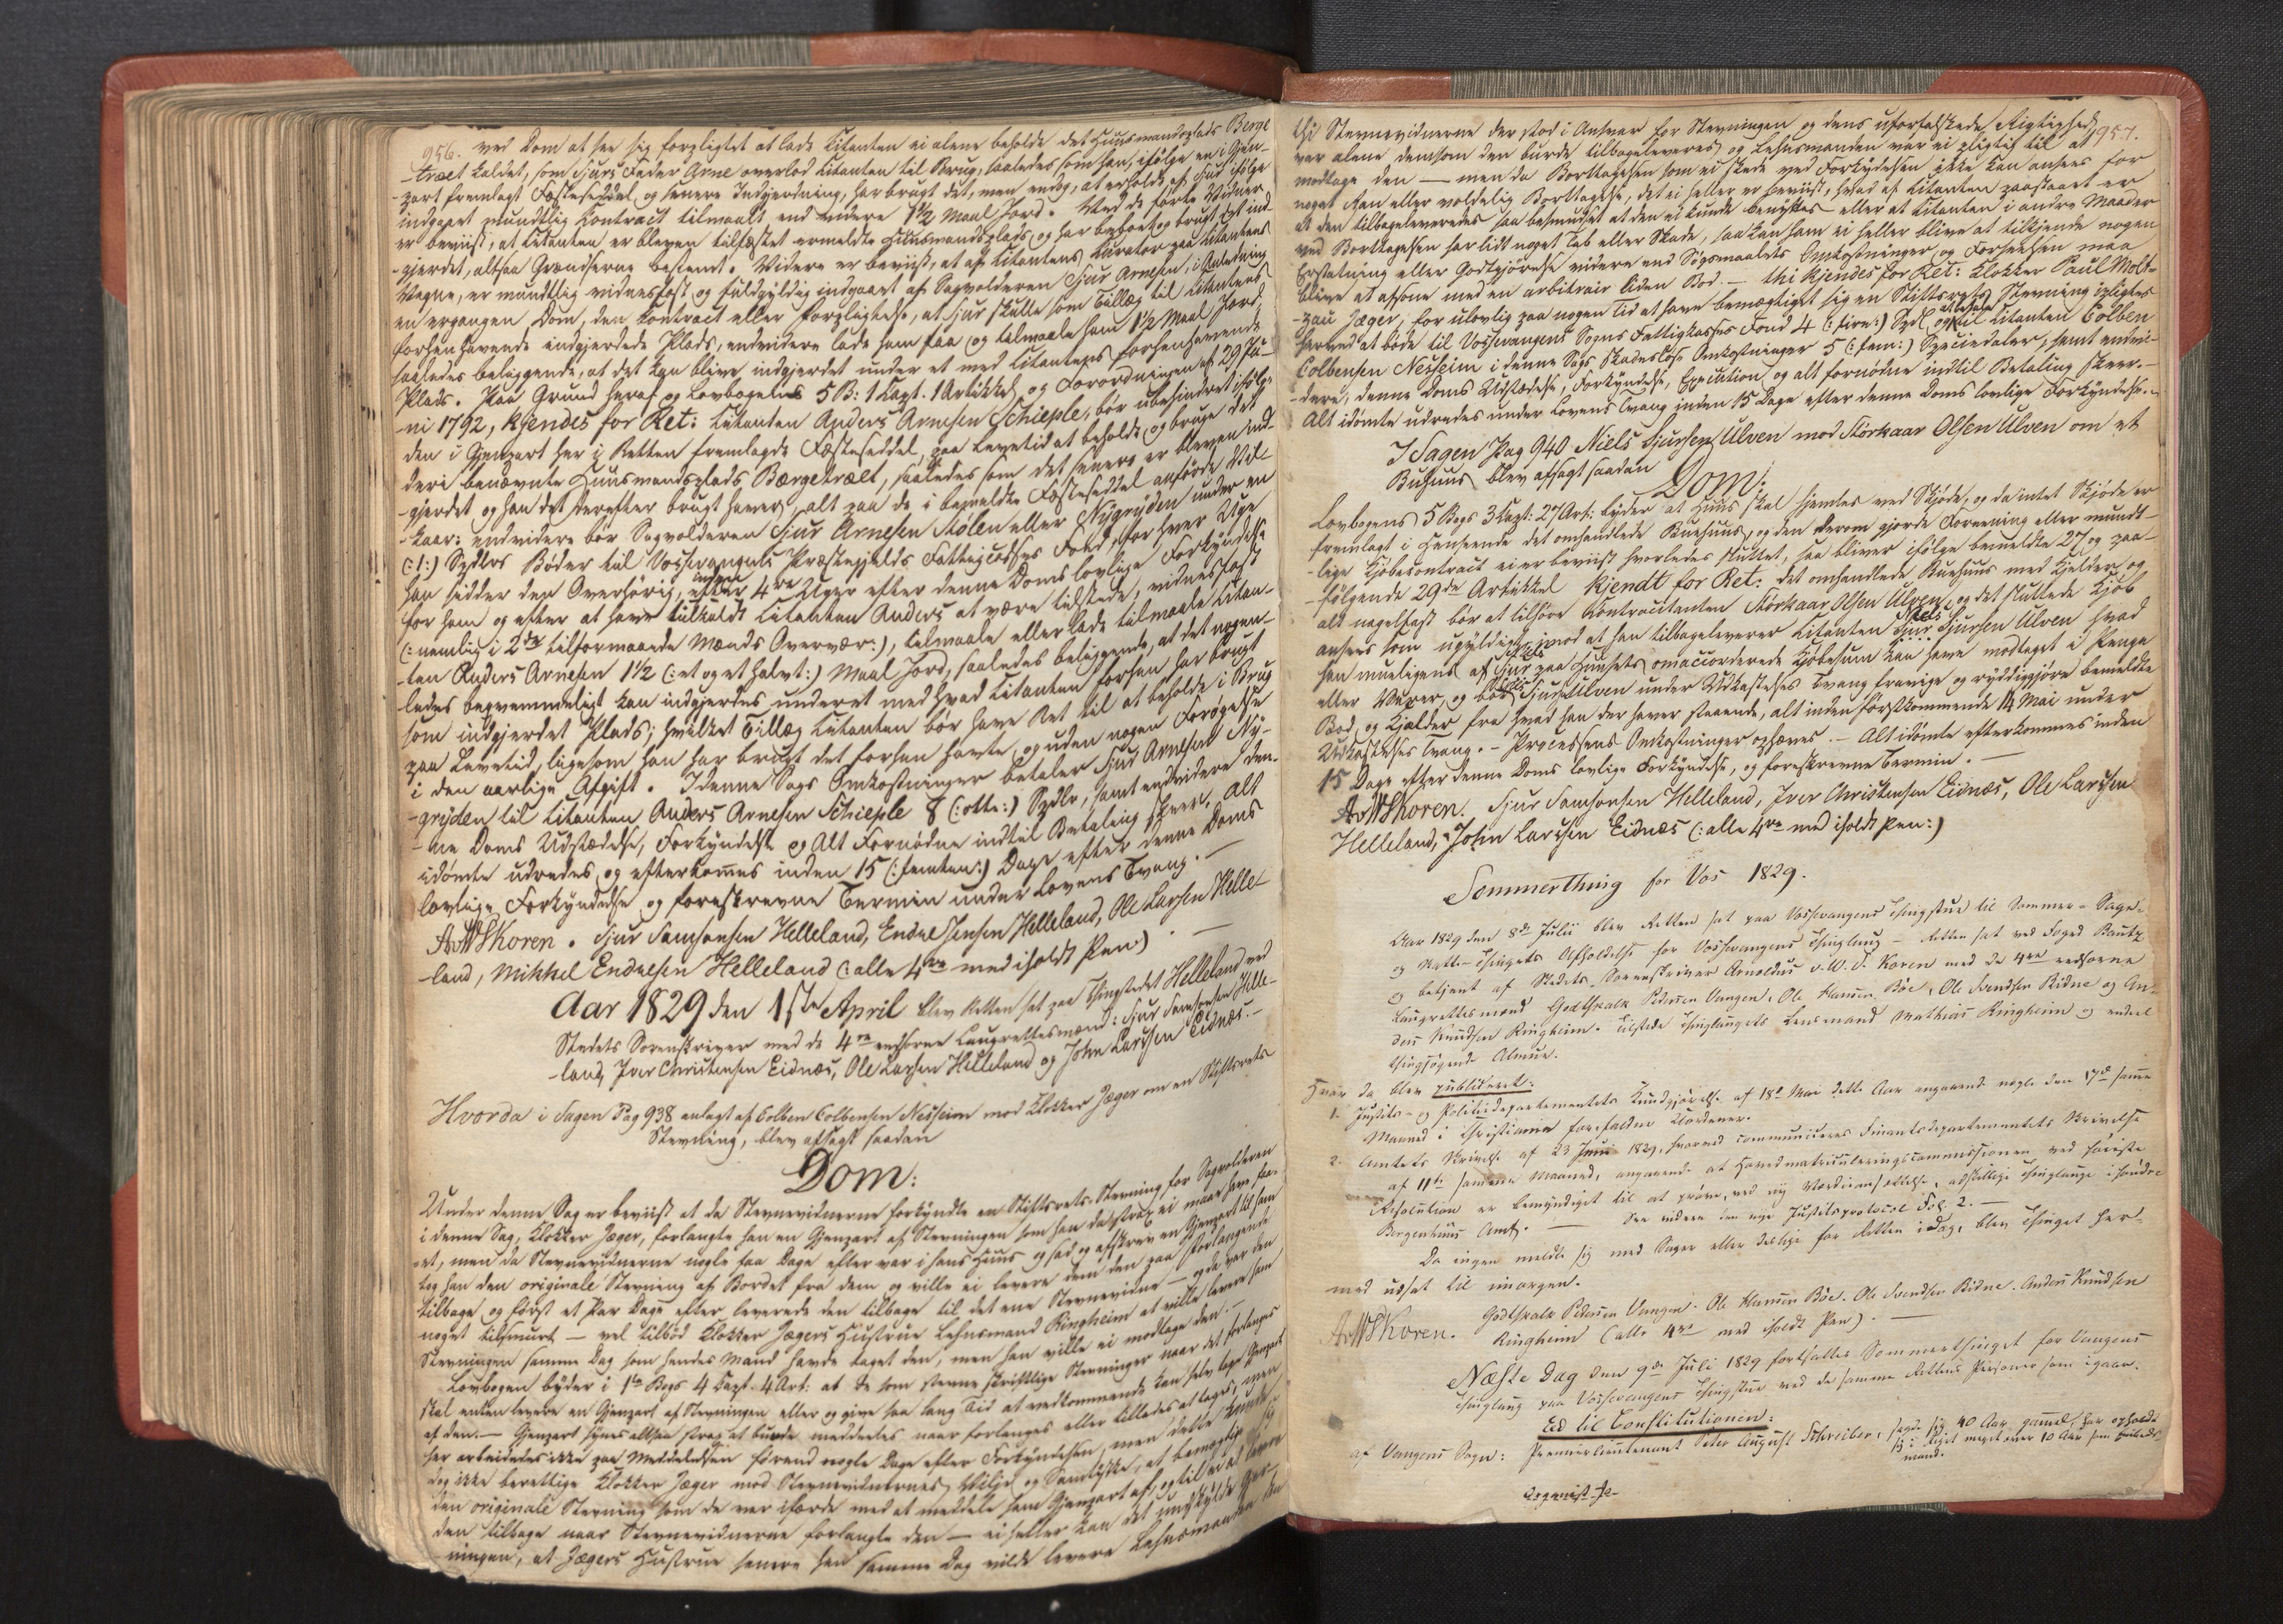 956.
ved Dom at see sig forpligtet at lade Citanten ei alene beholde det Huusmandsplads Berge
-træet kaldet, som Sjurs Fader Arne overlod Citanten til Brug, saaledes som han, ifølge en i Gjen-
-part fremlagt Fæsteseddel og senere Indgjerdning, har brugt det, men endog, at erholde af Sjur ifølge
indgaaet mundtlig Contract tilmaalt end videre 1½ Maal Jord. Ved de førte Vidner
er beviist, at Citanten er bleven tilfæstet ermeldte Huusmandsplads og har beboet og brugt det ind-
-gjerdet, altsaa Grændserne bestemt. Videre er beviist, at af Citantens Curator paa Citantens
Vegne, er mundtlig vidnesfast og fuldgyldig indgaaet af Sagvolderen Sjur Arnesen, i Anledning
en ergangen Dom, den Contract eller Forpligtelse, at Sjur skulle som Tillæg til Citantens
forhenhavende indgjerdede Plads, endvidere lade ham faa og tilmaale ham 1½ Maal Jord,
saaledes beliggende, at det kan blive indgjerdet under et med Citantens forhenhavende
Plads. Paa Grund heraf og Lovbogens 5 B: 1 Capt. 1 Artikkel og Forordningen af 29 Ju-
-ni 1792, kjendes for Ret: Citanten Anders Arnesen Schieple, bør ubehindret ifølge
den i Gjenpart her i Retten fremlagde Fæsteseddel, paa Levetid at beholde og bruge det
deri benævnte Huusmandsplads Bærgetræet, saaledes som det senere er bleven ind-
-gjerdet og han det derefter brugt haver, alt paa de i bemeldte Fæsteseddel anførde Vil-
-kaar; endvidere bør Sagvolderen Sjur Arnesen Stølen eller Nygryden under en
(:1:) Spdlrs Bøder til Vossevangens Præstegjelds Fattigcasses Fond, for hver Uge
han sidder den Overhørig, inden 4re Uger efter denne Doms lovlige Forkyndelse
for ham og efter at have tilkaldt Citanten Anders at være tilstede, vidnesfast
(:nemlig i 2de tilformaaende Mænds Overvær:), tilmaale eller lade tilmaale Citan-
-ten Anders Arnesen 1½ (:et og et halvt:) Maal Jord, saaledes beliggende, at det nogen-
ledes beqvemmeligt kan indgjerdes underet med hvad Citanten forhen har brugt
som indgjerdet Plads; hvilket Tillæg Citanten bør have Ret til at beholde i Brug
paa Levetid, ligesom han har brugt det forhen havte, og uden nogen Forøgelse
i den aarlige Afgift. I denne Sags Omkostninger betaler Sjur Arnesen Ny-
-gryden til Citanten Anders Arnesen Schieple 8 (:otte:) Spdlr, samt endvidere den-
-ne Doms Udstædelse, Forkyndelse og Alt Fornødne indtil Betaling skeer. Alt
idømte udredes og efterkommes inden 15 (:femten:) Dage efter denne Doms
lovlige Forkyndelse og foreskrevne Termin under Lovens Tvang. —
AvWSKoren. Sjur Samsonsen Helleland, Endre Jensen Helleland, Ole Larsen Helle-
land, Mikkel Endresen Helleland (:alle 4re med iholdt Pen)
Aar 1829 den 1ste April blev Retten sat paa Thingstedet Helleland ved
Stedets Sorenskriver med de 4re eedsorne Laugrettesmænd: Sjur Samsonsen Helle-
-land, Iver Christensen Eidnæs, Ole Larsen Helleland og John Larssen Eidnæs. —
Hvorda i Sagen Pag 938 anlagt af Colben Colbensen Nesheim mod Klokker Jæger om en Stiftsrets
Stevning, blev afsagt saadan
Dom:
Under denne Sag er beviist at da Stevnevidnerne forkyndte en Stiftsrets-Stevning for Sagvolderen
i denne Sag, Klokker Jæger, forlangte han en Gjenpart af Stevningen som han da strax ei maae have faa-
-et, men da Stevnevidnerne nogle faa Dage efter var i hans Huus og sad og afskrev en Gjenpart til ham
tog han den originale Stevning af Bordet fra dem og ville ei levere dem den paa Forlangende
tilbage, og først et Par Dage efter leverede den tilbage til det ene Stevnevidne — og da var den
noget tilsmurt — vel tilbød Klokker Jægers Hustrue Lehnsmand Ringheim at ville levere ham
Stevningen samme Dag som hendes Mand havde taget den, men han ville ei modtage den. —
Lovbogen byder i 1te Bogs 4 Capt. 4 Art: at de som stevne skriftlige Stevninger naar det forlanges
skal enten levere en Gjenpart af Stevningen eller og give saa lang Tid at vedkommende kan selv tage Gjenpart
af den. — Gjenpart synes altsaa strax at burde meddeles naar forlanges eller tillades at tages, men
her arbeidedes ikke paa Meddelelsen førend nogle Dage efter Forkyndelsen, men dette kunde
dog ikke berettige Klokker Jæger mod Stevnevidnernes Villie og Samtykke, at bemægtige sig
den originale Stevning som de var ifærde med at meddele ham Gjenpart af, og til ei at levere
den tilbage naar Stevnevidnerne forlangte den — ei heller kan det undskylde Gjer-
ningen, at Jægers Hustrue senere hen samme Dag vilde levere Lehnsmanden den
957.
thi Stevnevidnerne der stod i Ansvar for Stevningen og dens uforfalskede Rigtighed
var alene demsom den burde tilbageleveres og Lehnsmanden var ei pligtig til at
modtage den — men da Borttagelsen som ei skede ved Forkyndelsen ikke kan ansees for
noget Ran eller voldelig Borttagelse, det ei heller er beviist, hvad af Citanten paastaaet er
at den tilbageleveredes saa besmudset at den ei kunde benyttes eller at Citanten i andre Maader
ved Borttagelsen har lidt noget Tab eller Skade, saa kan ham ei heller blive at tilkjende nogen
Erstatning eller Godtgjørelse videre end Søgsmaalets Omkostninger og Forseelsen maa
blive at afsone med en arbitrair liden Bod. — thi kjendes for Ret: Klokker Paul Molt-
-zau Jæger, for ulovlig paa nogen Tid at have bemægtiget sig en Stiftsrets Stevning ipligtes
herved at bøde til Vossevangens Sogns Fattigkasses Fond 4 (:fire:) Spd og til Citanten Colben
Colbensen Nesheim i denne Sags skadesløse Omkostninger 5 (:fem:) Speciedaler, samt endvi-
-dere, denne Doms Udstædelse, Forkyndelse, Execution og alt fornødne indtil Betaling skeer. —
Alt idømte udredes under Lovens Tvang inden 15 Dage efter denne Doms lovlige Forkyndelse. —
I Sagen Pag 940 Niels Sjursen Ulven mod Storkaar Olsen Ulven om et
Buhuus blev afsagt saadan
Dom:
Lovbogens 5 Bogs 3 Capt: 27 Art: byder at Huus skal hjemles med Skjøde, og da intet Skjøde er
fremlagt i Henseende det omhandlede Buehuus, og den derom gjorde Forening eller mundt-
-lige Kjøbecontract ei er beviist hvorledes sluttet, saa bliver ifølge bemeldte 27 og paa-
-følgende 29de Artikkel kjendt for Ret: det omhandlede Buehuus med Kjelder og
alt nagelfast bør at tilhøre Contracitanten Storkaar Olsen Ulven, og det sluttede Kjøb
ansees som ugyldigt, imod at han tilbageleverer Citanten Niels Sjursen Ulven hvad
han mueligens af Niels paa Huusets omaccorderede Kjøbesum kan have modtaget i Penge
eller Vahrer, og bør Niels Sjursen Ulven under Udkastelses Tvang fravige og ryddiggjøre bemeldte
Bod, og Kjelder fra hvad han der haver staaende, alt inden førstkommende 14 Mai under
Udkastelses Tvang. — Processens Omkostninger ophæves. — Alt idømte efterkommes inden
15 Dage efter denne Doms lovlige Forkyndelse, og foreskrevne Termin. —
AvWSKoren. Sjur Samsonsen Helleland, Iver Christensen Eidnæs, Ole Larssen
Helleland, John Larssen Eidnæs (:alle 4re med iholdt Pen:)
Sommerthing for Vos 1829.
Aar 1829 den 8de Julii blev Retten sat paa Vossevangens Thingstue til Sommer-Sage-
og Skatte-Thingets Afholdelse for Vossevangens Thinglaug — Retten sat ved Foged Bautz
og betjent af Stedets Sorenskriver Arnoldus v. W. S. Koren med de 4re eedsorne
Laugrettesmænd Godtskalk Pedersen Vangen, Ole Hansen Bøe, Ole Svendsen Ridne og An-
ders Knudsen Ringheim. Tilstede Thinglaugets Lensmand Mathias Ringheim og endeel
thingsøgende Almue.
Hvor da blev publiceret:
1. Justits- og Politidepartementets Kundgjørelse af 18de Mai dette Aar angaaende nogle den 17de samme
Maaned i Christiania forefaldne Uordener.
2. Amtets Skrivelse af 23 Juni 1829, hvorved communiceres Finantsdepartementets Skrivelse
af 11te samme Maaned, angaaende at Hovedmatriculeringscommissionen ved høieste
Resolution er bemyndiget til at prøve, ved ny Værdieansættelse, adskillige Thinglauge i søndre
Bergenhuus Amt. — See videre den nye Justitsprotocol Fol. 2. —
Da ingen meldte sig med Sager eller Deslige for Retten i Dag, blev Thinget her-
med udsat til imorgen.
AvWSKoren. Godtskalk Pedersen Vangen. Ole Hansen Bøe. Ole Svendsen Ridne. Anders Knudsen
Ringheim (alle 4re med iholdt Pen). —
Næste Dag den 9de Juli 1829 fortsattes Sommerthinget for Vangens
Thinglaug paa Vossevangens Thingstue ved de samme Rettens Personer som igaar.
Ed til Constitutionen:
af Vangens Sogn: Premierlieutenant Peter August Schreiber, sagde sig 40 Aar gammel, har opholdt
sig i Riget meget over 10 Aar som Embeds-
mand.
Organist Jæ-